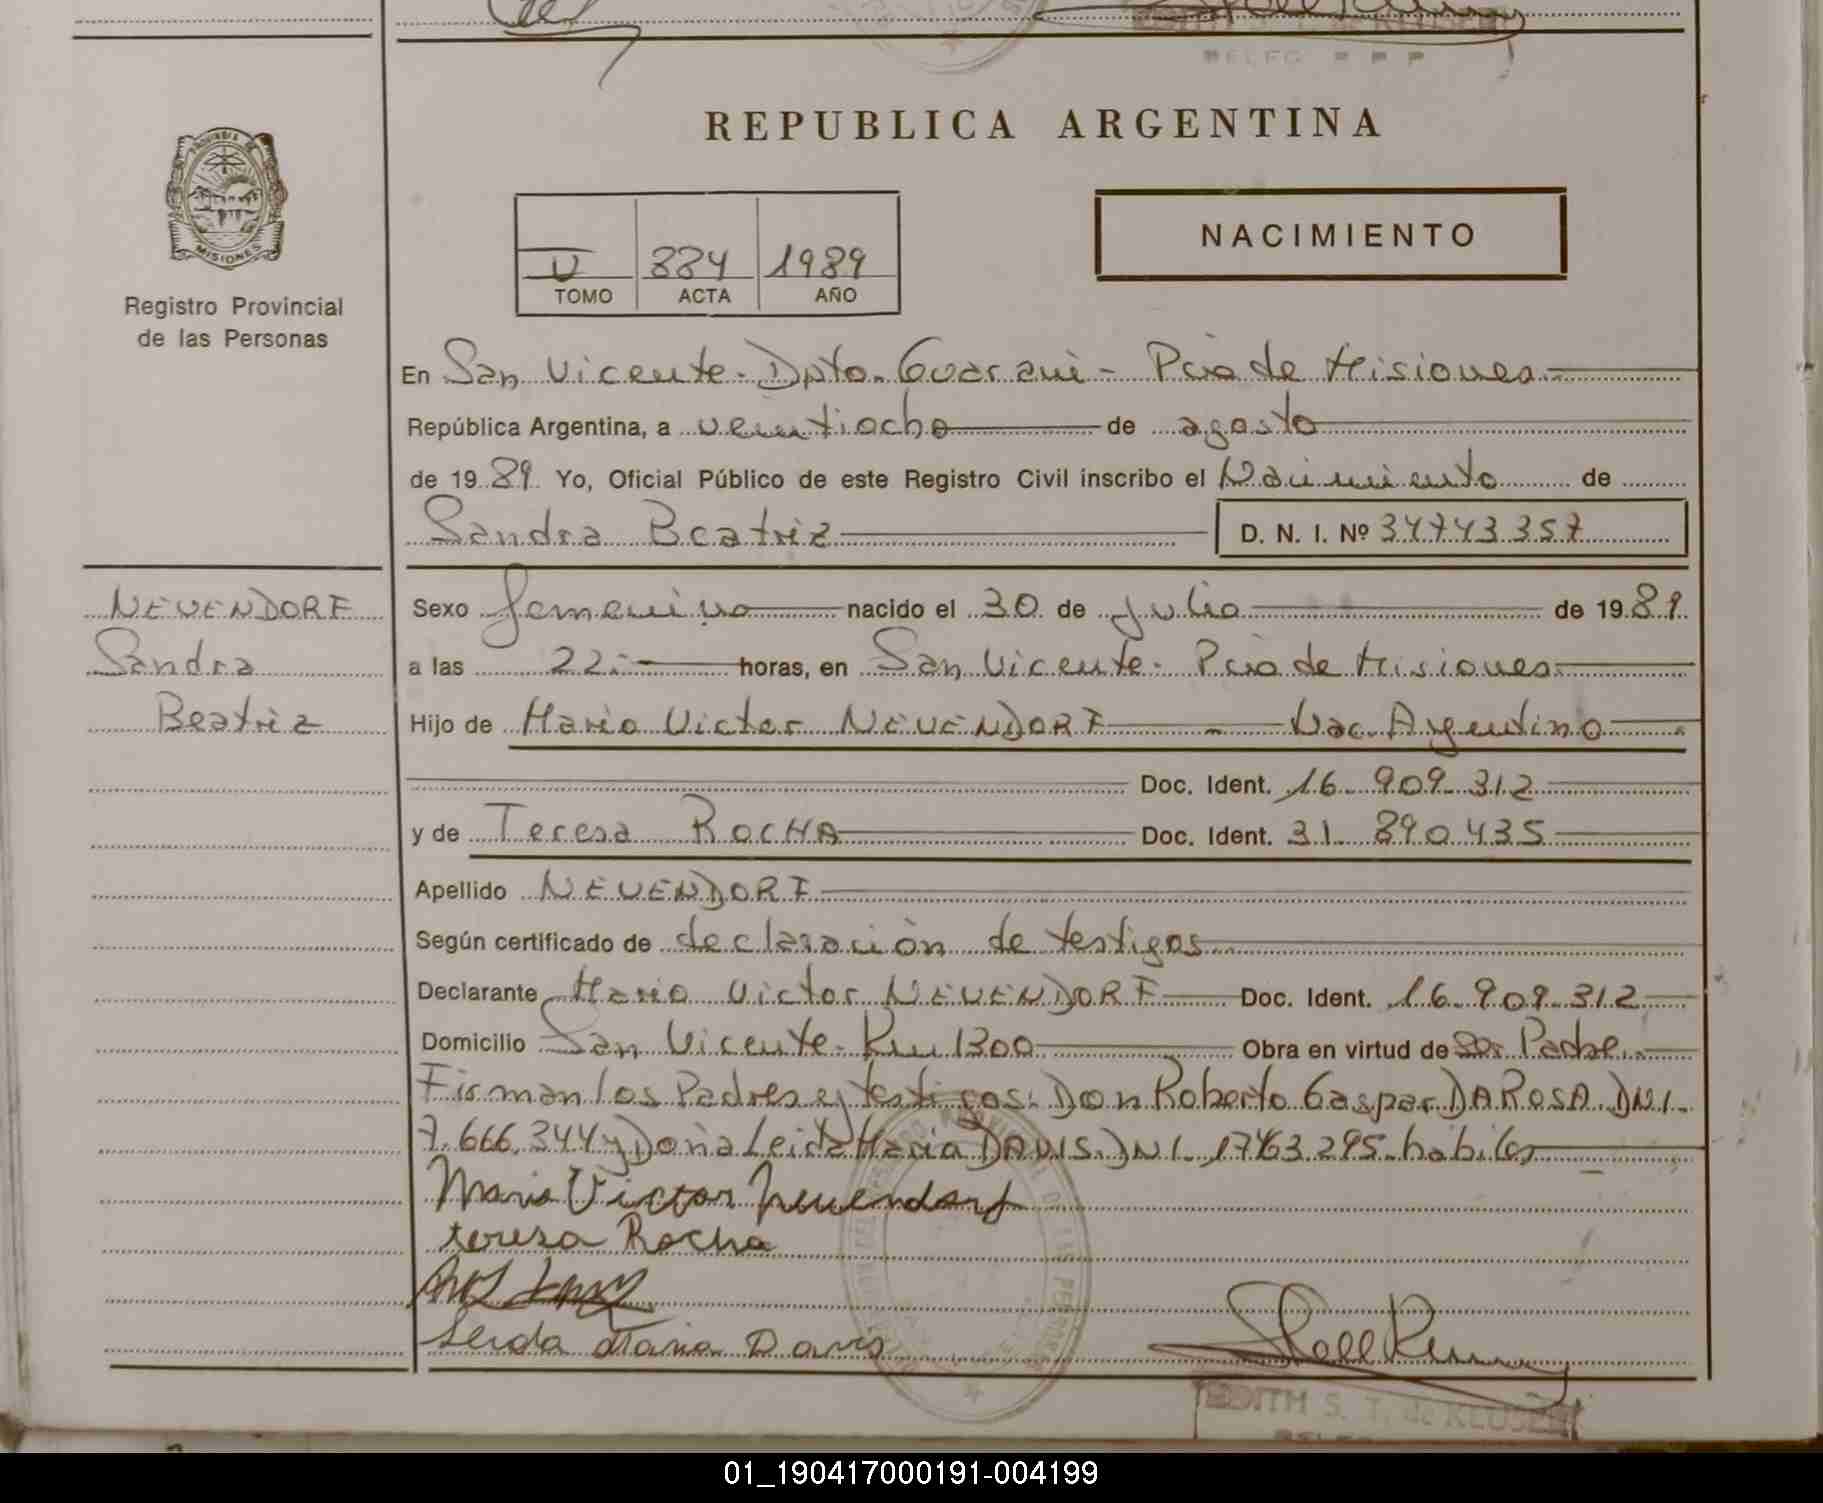 REPUBLICA ARGENTINA
PROVINCIA DE
MISIONES
Registro Provincial
de las Personas
U 884 1989
TOMO ACTA AÑO
NACIMIENTO
En San Vicente - Dpto. Guaraní - Pcia de Misiones.-
República Argentina, a veintiocho de agosto
de 19 89 Yo, Oficial Público de este Registro Civil inscribo el Nacimiento de
Sandra Beatriz D. N. I. Nº 34743357
NEUENDORF
Sandra
Beatriz
Sexo femenino nacido el 30 de Julio de 19 89
a las 22.- horas, en San Vicente - Pcia de Misiones.
Hijo de Mario Victor NEUENDORF - Nac. Argentino
Doc. Ident. 16.909.312
y de Teresa ROCHA Doc. Ident. 31.890.435
Apellido NEUENDORF
Según certificado de declaración de testigos
Declarante Mario Victor NEUENDORF Doc. Ident. 16.909.312
Domicilio San Vicente - Km 1300 Obra en virtud de ser Padre.-
Firman los Padres y testigos: Don Roberto Gaspar DA ROSA. DNI.
7.666.344 y Doña Leida Maria DAVIS. DNI. 17463.295 - hábiles
Mario Victor Neuendorf
teresa Rocha
Leida Maria Davis
EDITH S. T. de
01_190417000191-004199